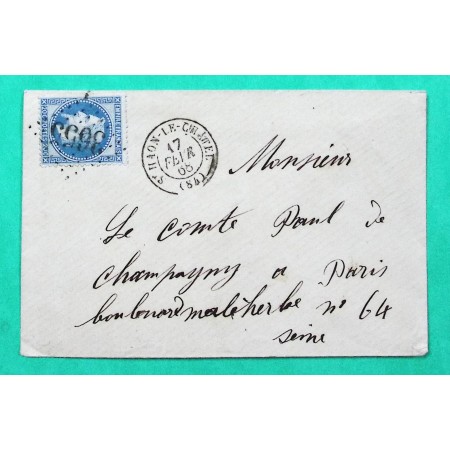 ST HAON-LE-CHATEL
17
FEVR
68
(84)
Monsieur
Le comte Paul de
Champagny a Paris
boulevard malesherbe n° 64
seine